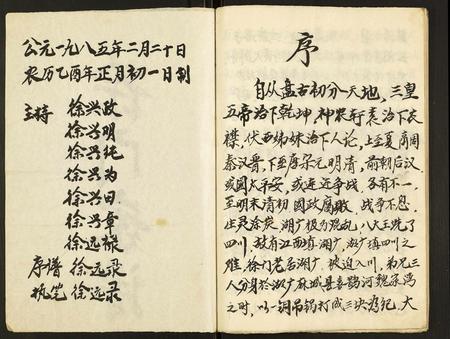 公元一九八五年二月二十日
农历乙酉年正月初一日刊
主持 徐兴政
徐兴明
徐兴纯
徐兴为
徐兴田
徐兴章
徐远禄
序谱 徐远录
执笔 徐远录
序
自从盘古初分天地，三皇
五帝治下乾坤，神农轩辕治下衣
襟，伏西姊妹治下人论，上至夏商周
秦汉晋，下至唐宋元明清，前朝后汉
或国太平安，或连连争战，各有不一，
至明末清初 国政腐败，战争不息，
生灵涂炭，湖广极为混乱，八大王洗了
四川，故有江西填湖广，湖广填四川之
难，徐门老居湖广，被迫入川，弟兄三
人分身於湖广麻城县 河
之时，以一铜吊锅打成三块为记，大